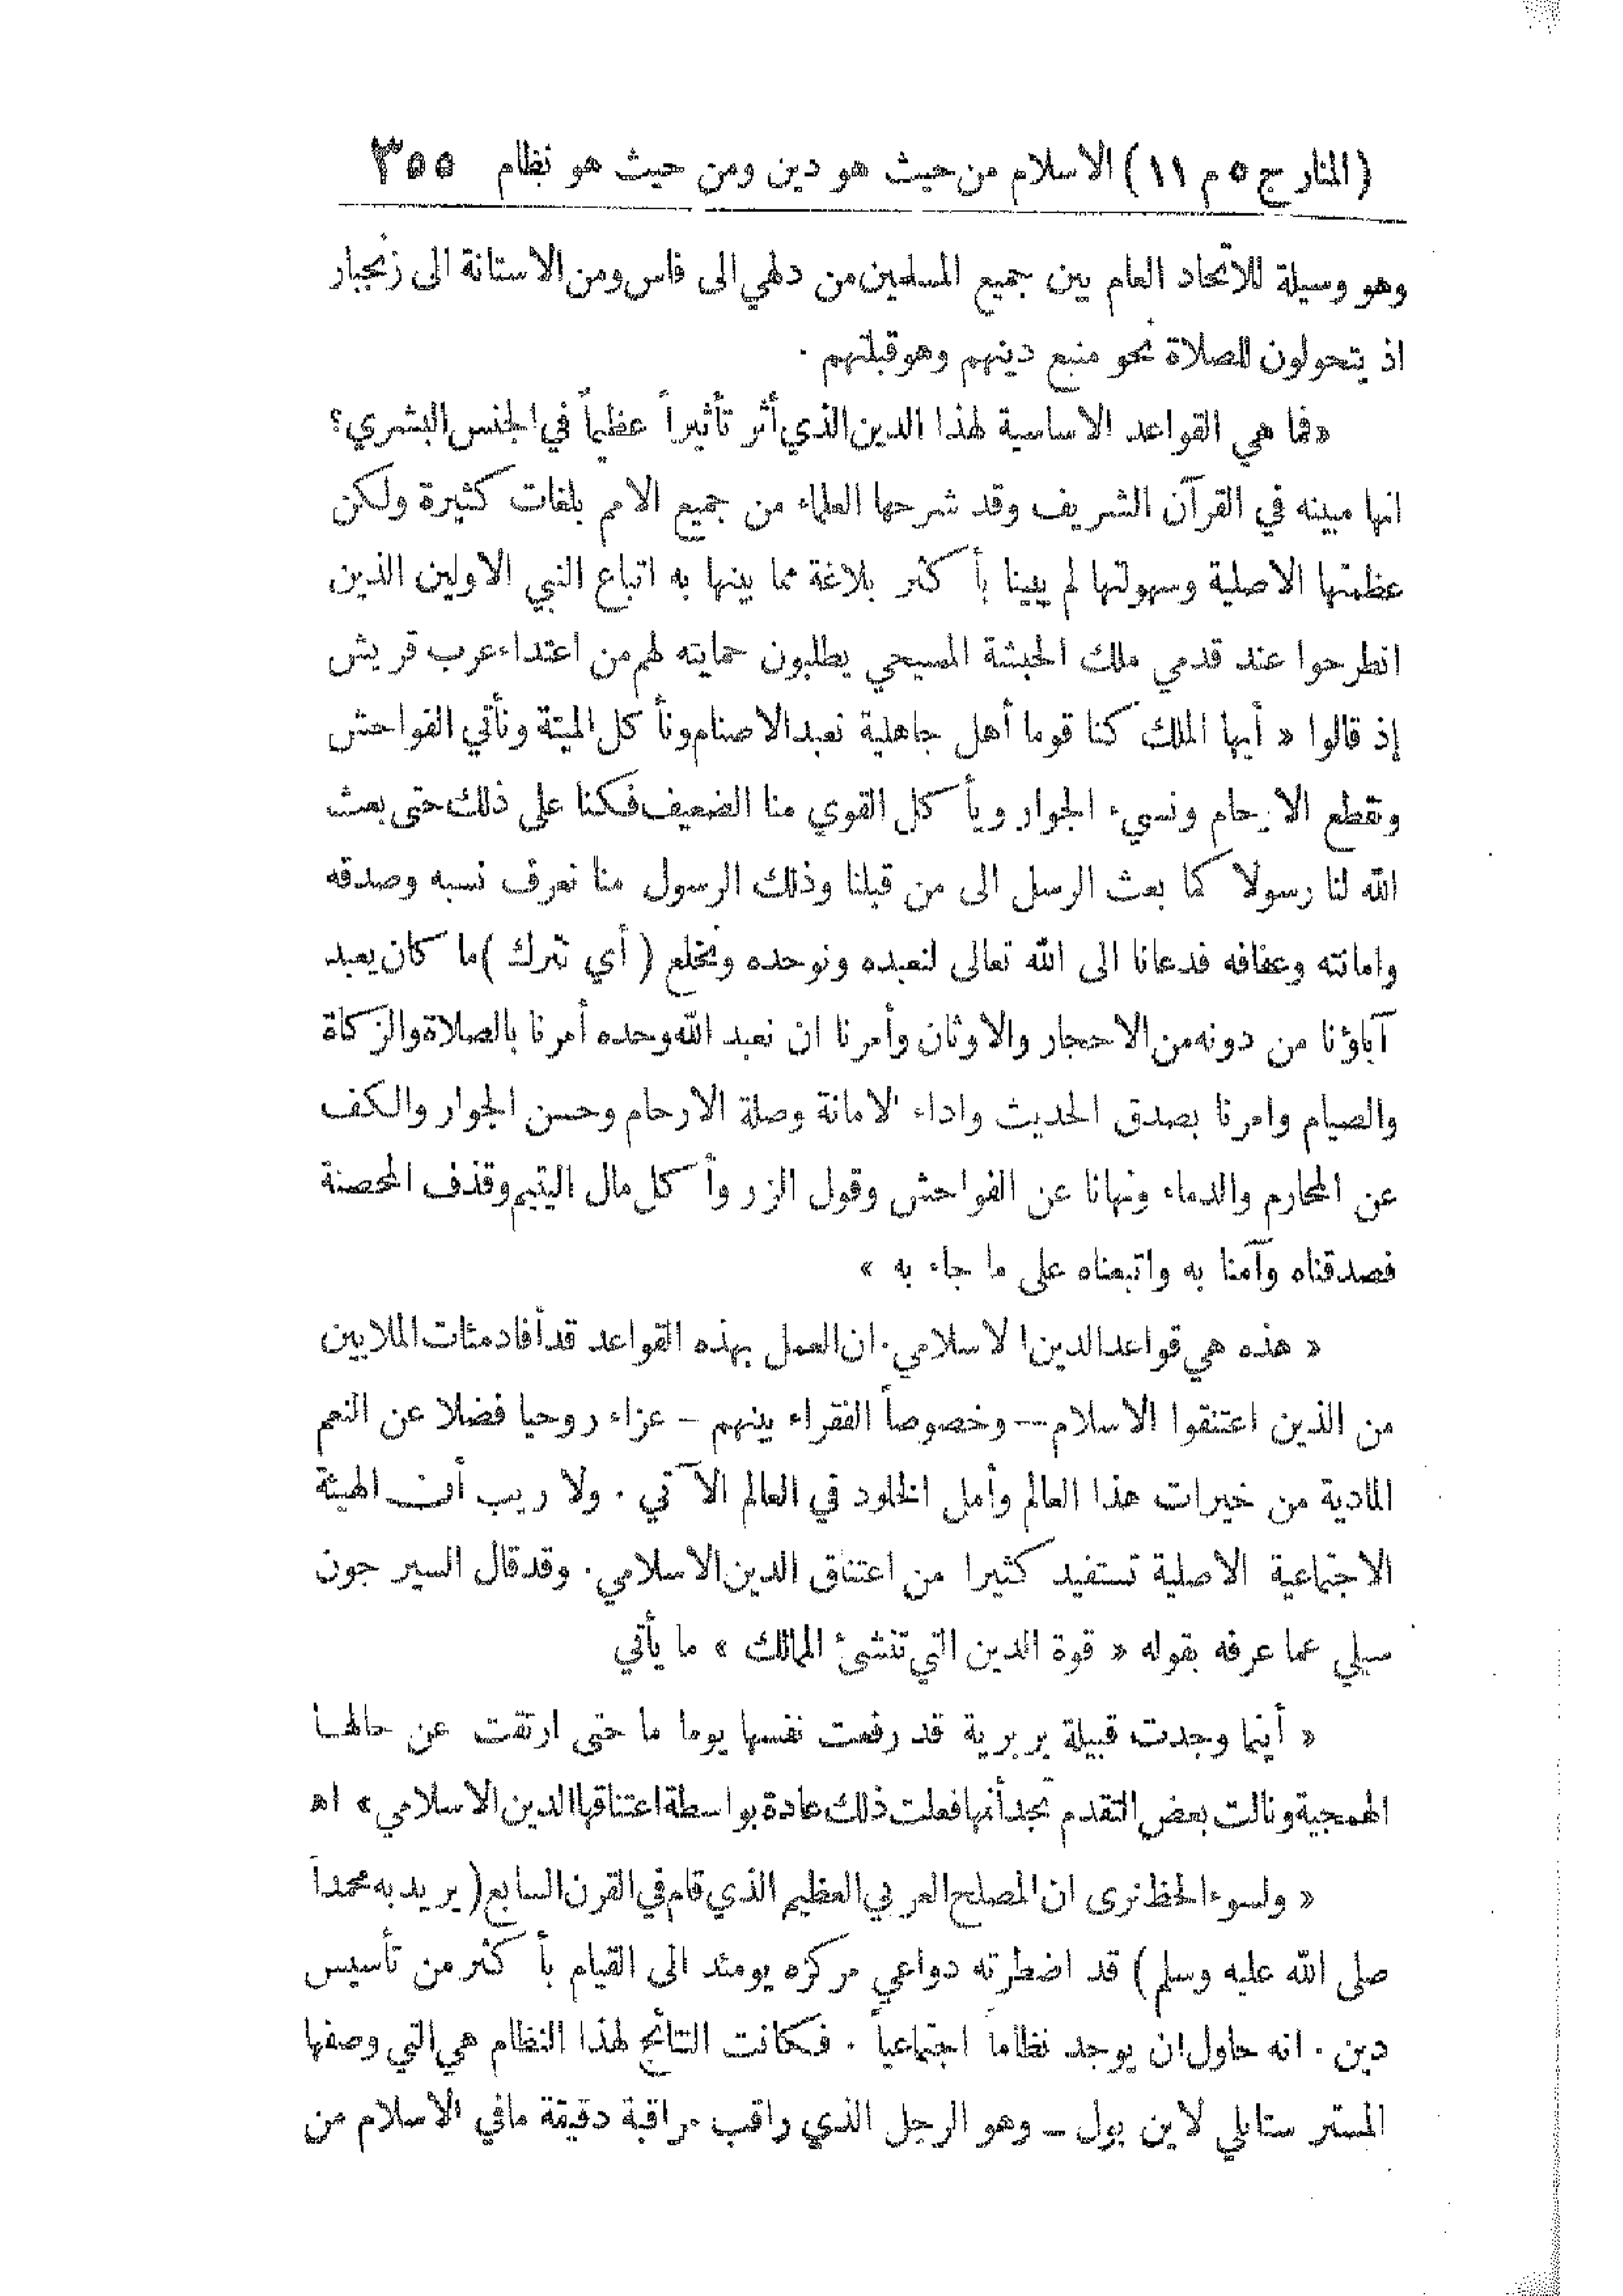 (المنار ج ٥ م ١١) الاسلام من حيث هو دين ومن حيث هو نظام ٣٥٥
وهو وسيلة للاتحاد العام بين جميع المسلمين من دلهي الى فاس ومن الاستانة الى زنجبار
اذ يتحولون للصلاة نحو منبع دينهم وهو قبلتهم .
« فما هي القواعد الاساسية لهذا الدين الذي أثر تأثيراً عظيماً في الجنس البشري؟
انها مبينه في القرآن الشريف وقد شرحها العلماء من جميع الامم بلغات كثيرة ولكن
عظمتها الاصلية وسهولتها لم يبينا بأكثر بلاغة مما بينها به اتباع النبي الاولين الذين
انطرحوا عند قدمي ملك الحبشة المسيحي يطلبون حمايته لهم من اعتداء عرب قريش
إذ قالوا « أيها الملك كنا قوما أهل جاهلية نعبد الاصنام ونأكل الميتة ونأتي الفواحش
ونقطع الارحام ونسيء الجوار ويأكل القوي منا الضعيف فكنا على ذلك حتى بعث
الله لنا رسولا كما بعث الرسل الى من قبلنا وذلك الرسول منا نعرف نسبه وصدقه
وامانته وعفافه فدعانا الى الله تعالى لنعبده ونوحده ونخلع ( أي نترك ) ما كان يعبد
آباؤنا من دونه من الاحجار والاوثان وأمرنا ان نعبد الله وحده أمرنا بالصلاة والزكاة
والصيام وامرنا بصدق الحديث واداء الامانة وصلة الارحام وحسن الجوار والكف
عن المحارم والدماء ونهانا عن الفواحش وقول الزر وأكل مال اليتيم وقذف المحصنة
فصدقناه وآمنا به واتبعناه على ما جاء به »
« هذه هي قواعد الدين الاسلامي . ان العمل بهذه القواعد قد أفاد مئات الملايين
من الذين اعتنقوا الاسلام — وخصوصاً الفقراء بينهم — عزاء روحيا فضلا عن النعم
المادية من خيرات هذا العالم وأمل الخلود في العالم الآتي . ولا ريب أن الهيئة
الاجتماعية الاصلية تستفيد كثيرا من اعتناق الدين الاسلامي . وقد قال السير جون
سيلي عما عرفه بقوله « قوة الدين التي تنشئ الممالك » ما يأتي
« أينما وجدت قبيلة بربرية قد رفعت نفسها يوما ما حتى ارتقت عن حالها
الهمجية ونالت بعض التقدم تجد أنها فعلت ذلك عادة بواسطة اعتناقها الدين الاسلامي » اه
« ولسوء الحظ نرى ان المصلح العربي العظيم الذي قام في القرن السابع ( يريد به محمداً
صلى الله عليه وسلم ) قد اضطرته دواعي مركزه يومئذ الى القيام بأكثر من تأسيس
دين . انه حاول ان يوجد نظاما اجتماعياً . فكانت النتائج لهذا النظام هي التي وصفها
المستر ستانلي لاين بول — وهو الرجل الذي راقب مراقبة دقيقة مافي الاسلام من